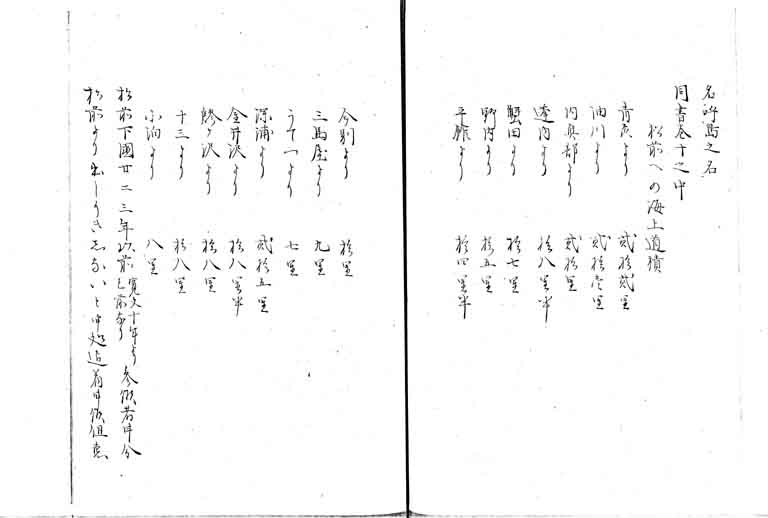 名所島之名
同書巻十之中
松前への海上道積
青森より 貳拾貳里
油川より 貳拾壱里
内真部より 貳拾里
蓬田より 拾八里半
蟹田より 拾七里
野内より 拾五里
平館より 拾四里半
今別より 拾里
三馬屋より 九里
うてつより 七里
深浦より 貳拾五里
金井沢より 拾八里半
鯵ヶ沢より 拾八里
十三より 拾八里
小泊より 八里
松前下国廿二三年以前 寛文十年より 已前なり 参候者申分
松前より出しりきしないと申処迄着申候